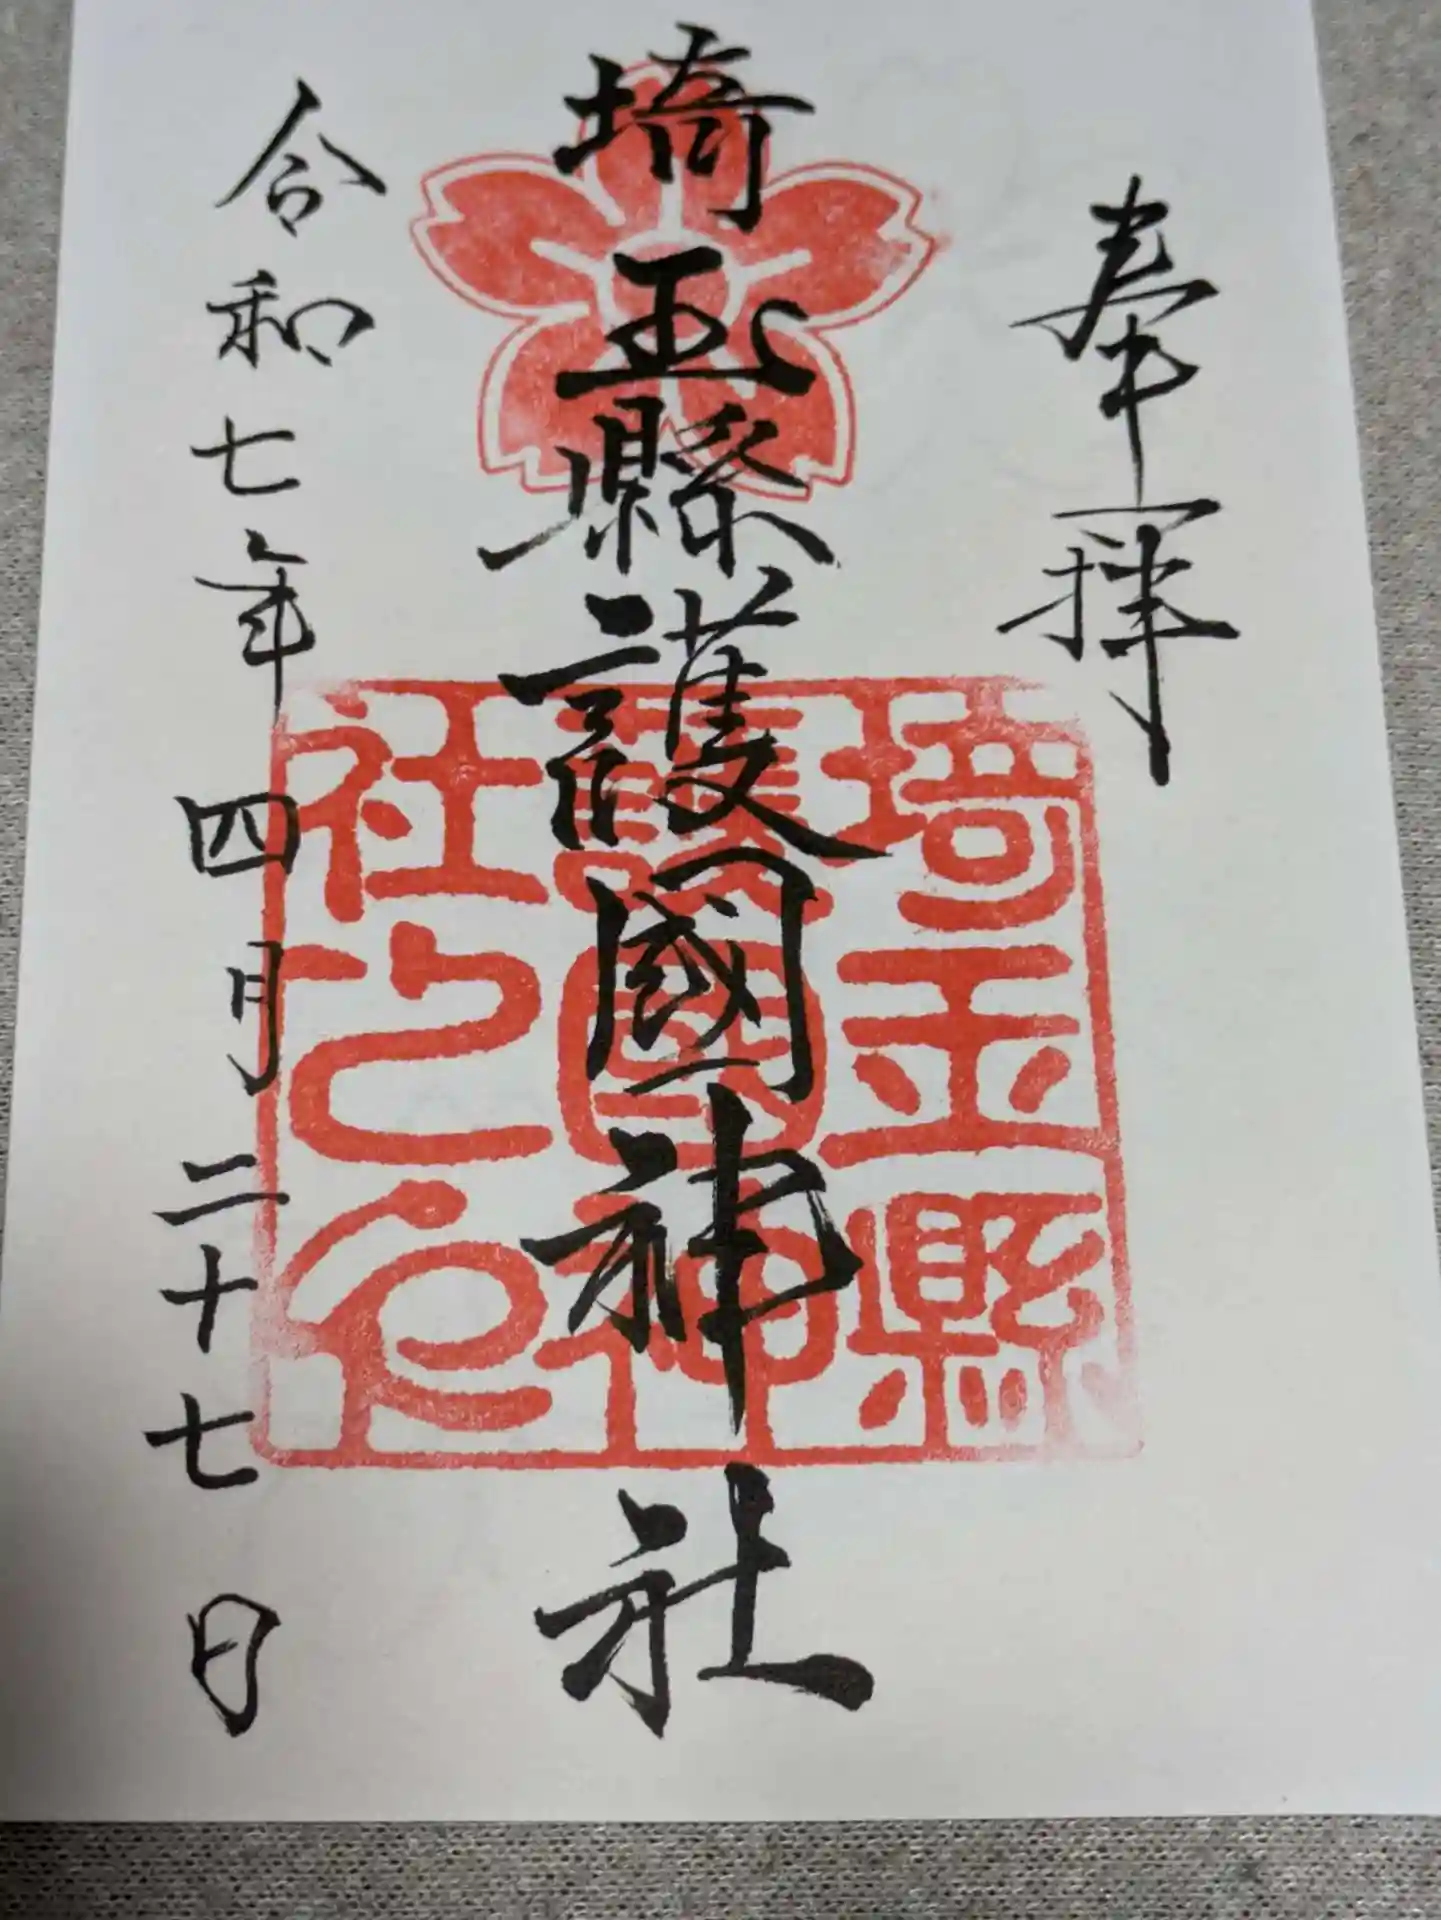 奉拝
埼玉縣護國神社
令和七年四月二十七日
埼玉縣
護國神
社之印